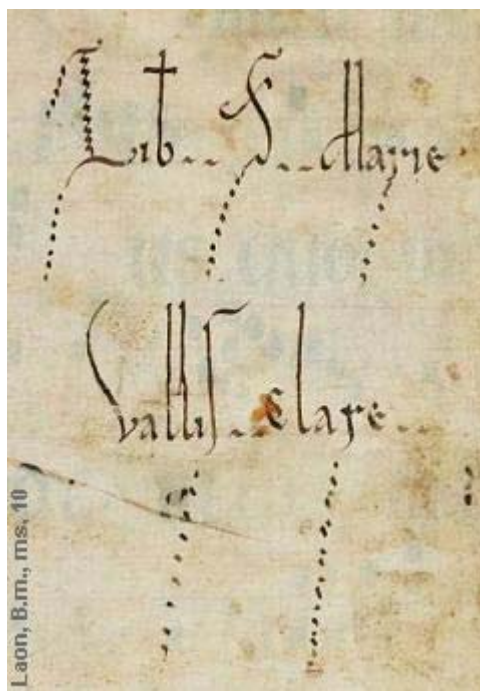 Lib.. S.. Marie
vallis..clare..
Laon, B.m., ms. 10